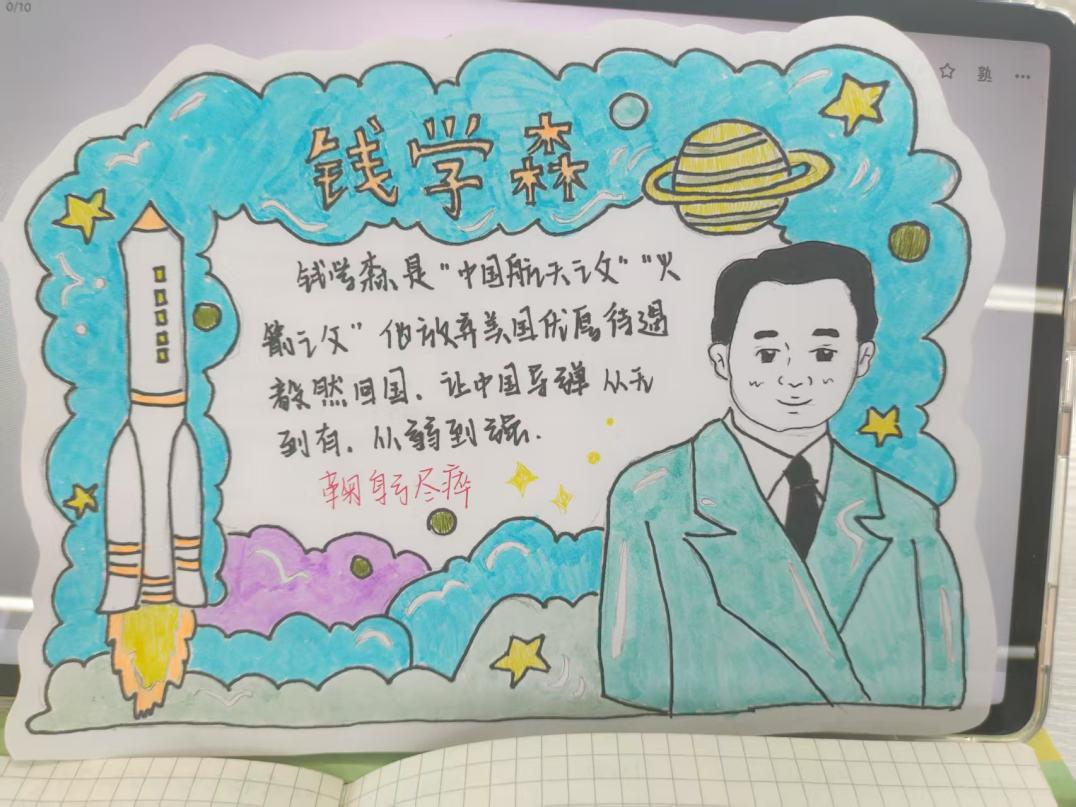 0/10
塾 ...
钱学森
钱学森是"中国航天之父""火
箭之父"他放弃美国优厚待遇
毅然回国.让中国导弹从无
到有.从弱到强.
鞠躬尽瘁